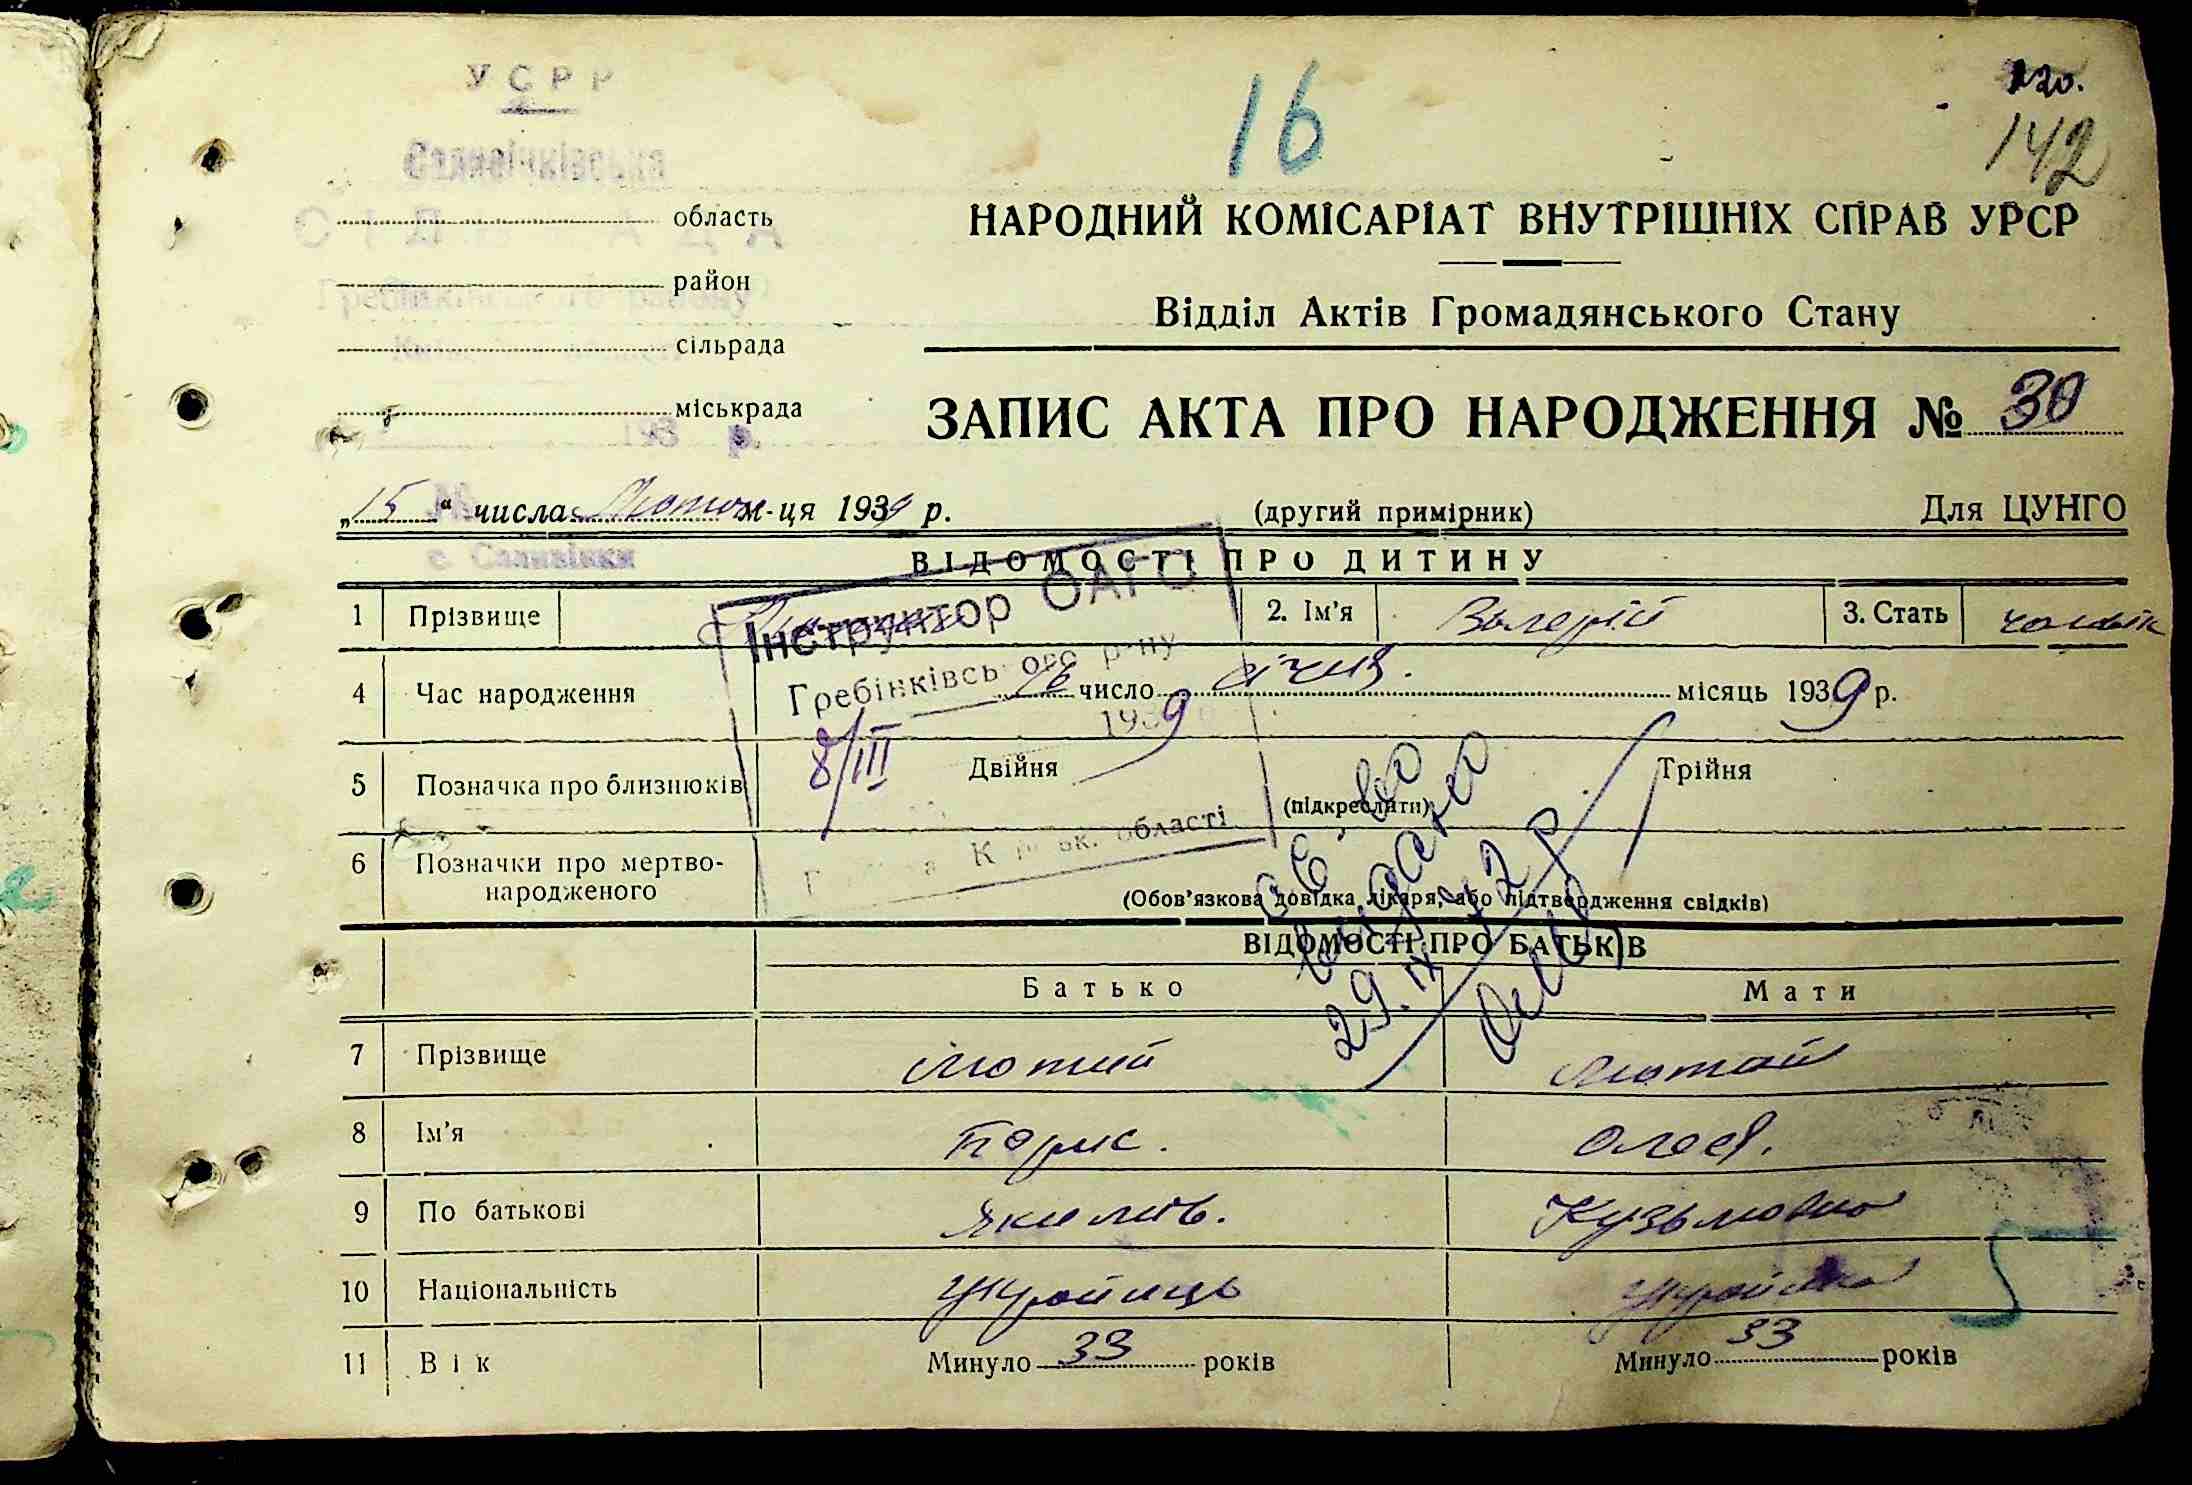 УСРР
16
120.
142
Саливінківська
СІЛ АДА
область
НАРОДНИЙ КОМІСАРІАТ ВНУТРІШНІХ СПРАВ УРСР
район
Гребінківського району
Відділ Актів Громадянського Стану
сільрада
міськрада
193 р.
ЗАПИС АКТА ПРО НАРОДЖЕННЯ № 30
„15“ числа Лютого м-ця 1939 р. (другий примірник) Для ЦУНГО
№
с. Саливінки
ВІДОМОСТІ ПРО ДИТИНУ
1 Прізвище 2. Ім'я Валерій 3. Стать чоловік
Інструктор ОАГС
Гребінківського р-ну
1939
8/III
К області
4 Час народження 16 число січня. місяць 1939 р.
5 Позначка про близнюків Двійня (підкреслити) Трійня
6 Позначки про мертво-
народженого
(Обов'язкова довідка лікаря, або підтвердження свідків)
св-во
видано
29.IX 42 р.
ВІДОМОСТІ ПРО БАТЬКІВ
Батько Мати
7 Прізвище Лютий Лютай
8 Ім'я Борис. Олеся.
9 По батькові Якимів. Кузьмовна
10 Національність Українець Українка
5
11 Вік Минуло 33 років Минуло 33 років